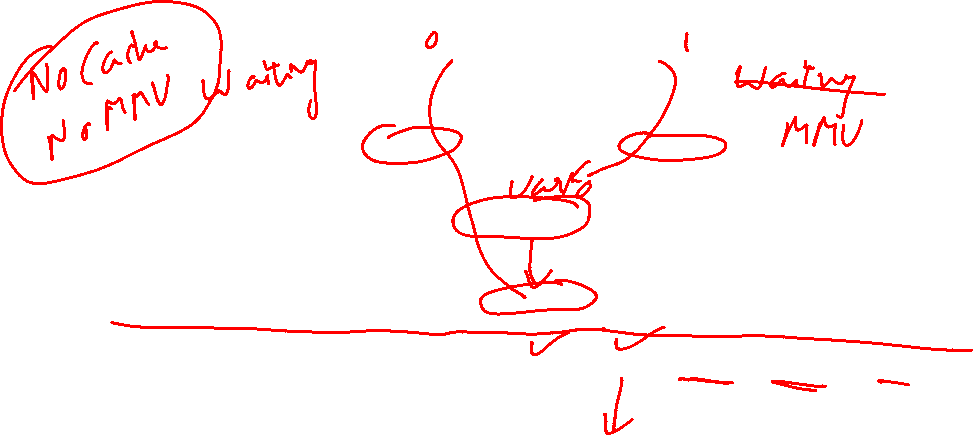 0 1
No Cache
No MMU Waiting
Waiting
MMU
Var